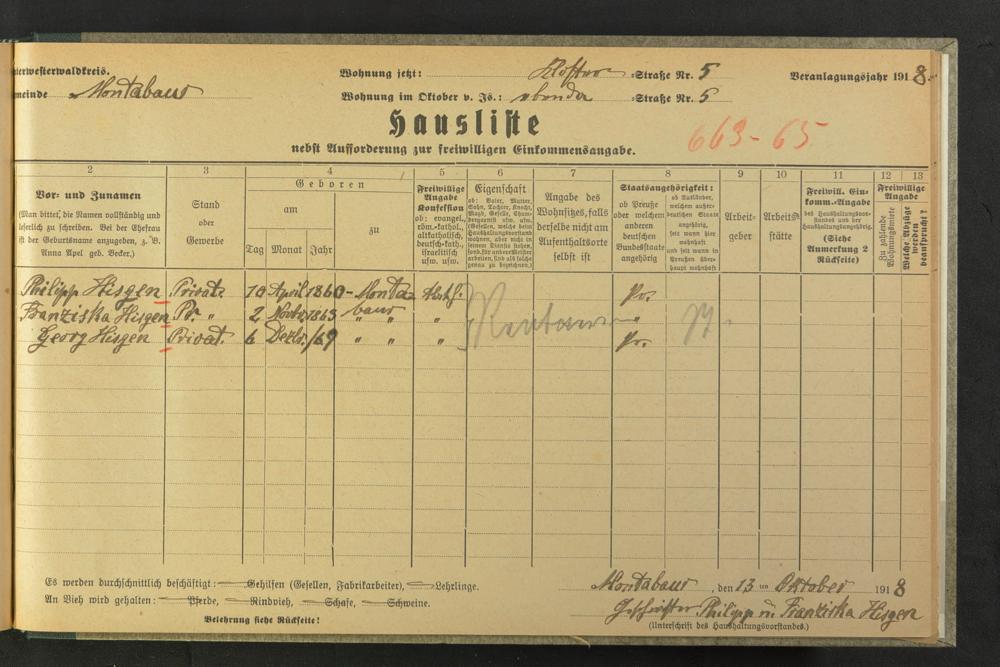 nterwesterwaldkreis.
Wohnung jetzt: Kloster =Straße Nr. 5
Veranlagungsjahr 1918.
meinde Montabaur
Wohnung im Oktober v. Js.: ebenda =Straße Nr. 5
Hausliste
663-65
nebst Aufforderung zur freiwilligen Einkommensangabe.
2 3 4 5 6 7 8 9 10 11 12 13
Vor- und Zunamen
(Man bittet, die Namen vollständig und
leserlich zu schreiben. Bei der Ehefrau
ist der Geburtsname anzugeben, z. B.
Anna Apel geb. Becker.)
Stand
oder
Gewerbe
Geboren
am
zu
Tag Monat Jahr
Freiwillige
Angabe
Konfession
ob: evangel.,
röm.-kathol.,
altkatholisch,
deutsch-kath.,
israelitisch
usw. usw.
Eigenschaft
ob: Vater, Mutter,
Sohn, Tochter, Knecht,
Magd, Geselle,
Angabe des
Wohnsitzes, falls
derselbe nicht am
Aufenthaltsorte
selbst ist
Staatsangehörigkeit:
ob Preuße
oder welchem
anderen
deutschen
Bundesstaate
angehörig
ob Ausländer,
welchem außer-
deutschen Staate
angehörig,
seit wann hier
wohnhaft
und seit wann in
Preußen über-
haupt wohnhaft
Arbeit-
geber
Arbeits-
stätte
Freiwill. Ein-
komm.-Angabe
des Haushaltungsvor-
standes und der
Haushaltungsangehörig.
(Siehe
Anmerkung 2
Rückseite)
Freiwillige
Angabe
Zu zahlende
Wohnungsmiete
Welche Abzüge
werden
beansprucht?
Philipp Hisgen Privat. 10 April 1860 - Monta- Kath. Pr.
Franziska Hisgen Pr. " 2 Novbr. 1863 baur " "
Georg Hisgen Privat. 6 Dezbr. /69 " " " Pr.
Es werden durchschnittlich beschäftigt: Gehilfen (Gesellen, Fabrikarbeiter), Lehrlinge.
An Vieh wird gehalten: Pferde, Rindvieh, Schafe, Schweine.
Belehrung siehe Rückseite!
Montabaur, den 13ten Oktober 1918
Geschwister Philipp u Franziska Hisgen
(Unterschrift des Haushaltungsvorstandes.)